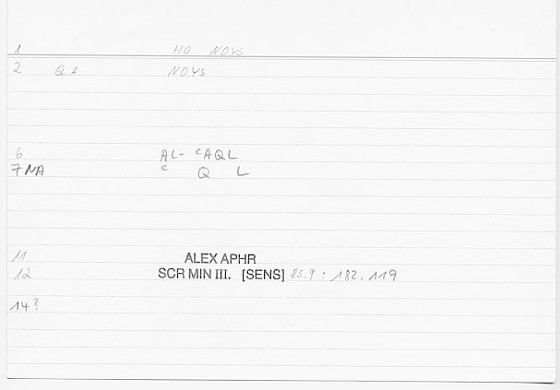 1 HO NOYS
2 QA NOYS
6 AL- cAQL
7 NA c Q L
11 ALEX APHR
12 SCR MIN III. [SENS] 85.9 : 182.119
14?